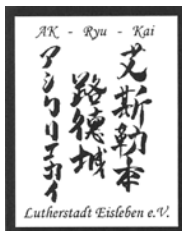 AK - Ryu - Kai
艾斯勒本
路德城
アシクリユカイ
Lutherstadt Eisleben e.V.